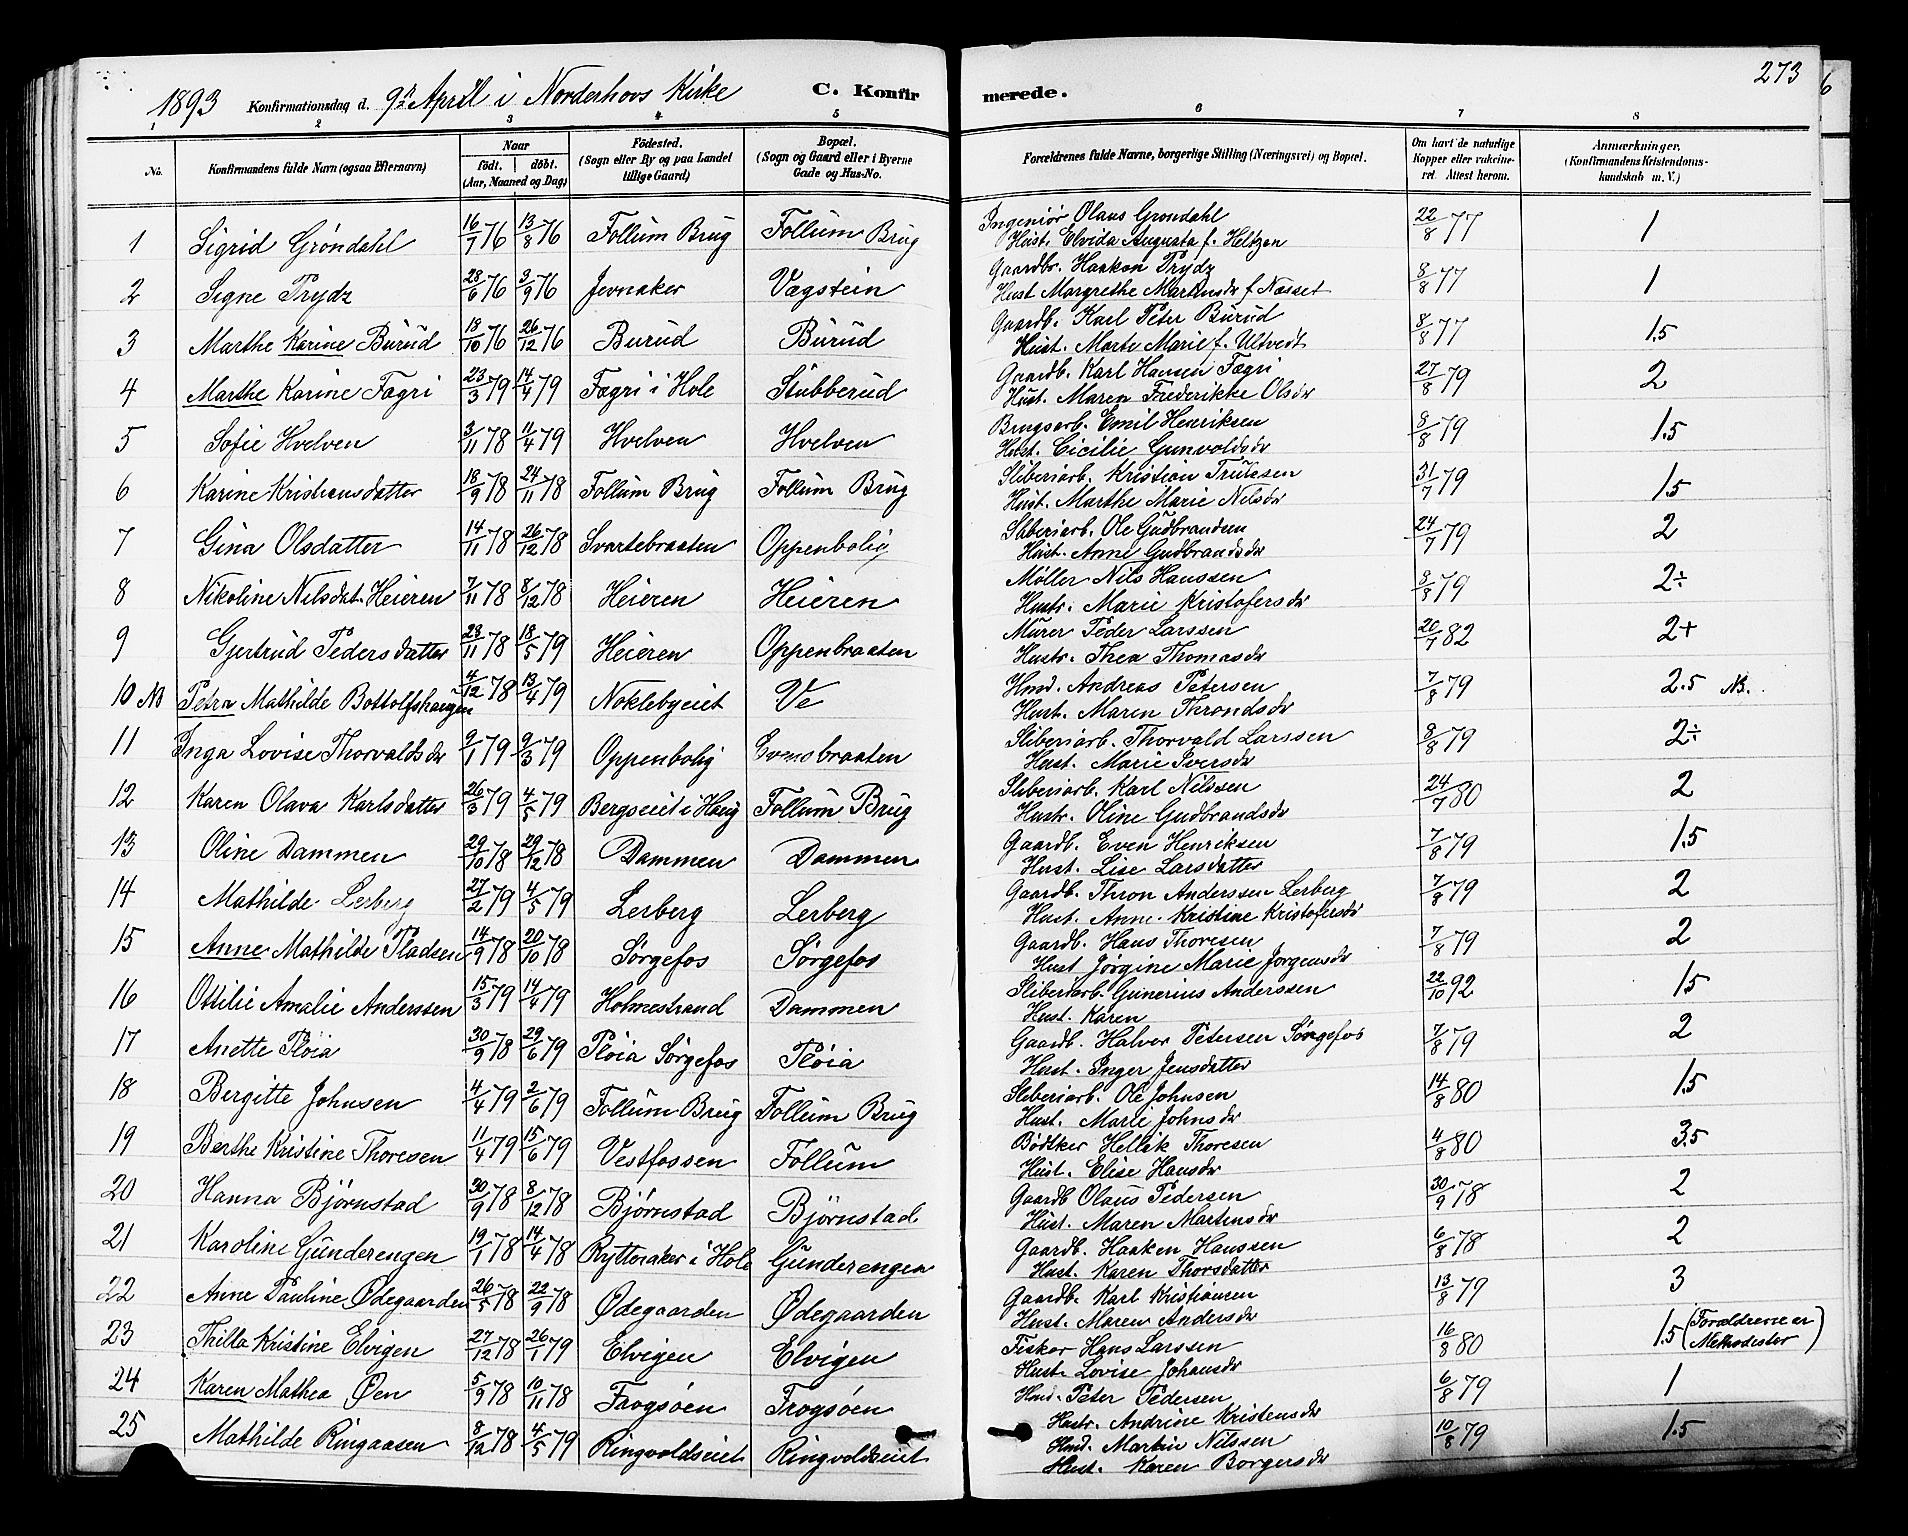 273
1893 Konfirmationsdag d. 9de April i Norderhovs Kirke C. Konfirmerede.
1 2 3 4 5 6 7 8
No. Konfirmandens fulde Navn (ogsaa Efternavn) Naar født. døbt. (Aar, Maaned og Dag) Födested. (Sogn eller By og paa Landet tillige Gaard) Bopæl. (Sogn og Gaard eller i Byerne Gade og Hus-No. Forældrenes fulde Navne, borgerlige Stilling (Næringsvei) og Bopæl. Om havt de naturlige Kopper eller vakcineret. Attest herom. Anmærkninger. (Konfirmandens Kristendomskundskab m. V.)
1 Sigrid Gröndahl 16/7 76 13/8 76 Follum Brug Follum Brug Ingeniør Olaus Grondahl 22/8 77 1
Hust. Elvida Augusta f. Heltzen
2 Signe Prydz 28/6 76 3/9 76 Jevnaker Vægstein Gaardbr. Haakon Prydz 8/8 77 1
Hust Margrethe Martinsdr f. Næsset
3 Marthe Karine Burud 18/10 76 26/12 76 Burud Burud Gaardb. Karl Peter Burud 8/8 77 1.5
Hust. Marte Marie f. Ultvedt
4 Marthe Karine Fagri 23/3 79 14/4 79 Fægri i Hole Stubberud Gaardb. Karl Hansen Fægri 27/8 79 2
Hust. Maren Frederikke Olsdr
5 Sofie Hvelven 3/11 78 11/4 79 Hvelven Hvelven Brugsarb. Emil Henriksen 8/8 79 1.5
Hust. Cicilie Gunvoldsdr
6 Karine Kristiansdatter 18/9 78 24/11 78 Follum Brug Follum Brug Sliberiarb. Kristian Trulsen 31/7 79 1.5
Hust. Marthe Marie Nilsdr
7 Gina Olsdatter 14/11 78 26/12 78 Svartebraaten Oppenbolig Sliberiarb. Ole Gudbrandsen 24/7 79 2
Hust. Anne Gudbrandsdr
8 Nikoline Nilsdat. Heieren 7/11 78 8/12 78 Heieren Heieren Møller Nils Hanssen 8/8 79 2÷
Hustr. Marie Kristofersdr
9 Gjertrud Pedersdatter 28/11 78 18/5 79 Heieren Oppenbraaten Murer Peder Larssen 20/7 82 2+
Hustr. Thea Thomasdr
10 NB Petra Mathilde Bottolfshaugen 4/12 78 13/4 79 Noklebyeiet Ve Hmd. Andreas Petersen 7/8 79 2.5 NB.
Hust. Maren Throndsdr
11 Inga Lovise Thorvaldsdr 9/1 79 9/3 79 Oppenbolig Evensbraaten Sliberiarb. Thorvald Larssen 8/8 79 2÷
Hust. Marie Iversdr
12 Karen Olava Karlsdatter 26/3 79 4/5 79 Bergseiet i Haug Follum Brug Sliberiarb. Karl Nilssen 24/7 80 2
Hustr. Oline Gudbrandsdr
13 Oline Dammen 29/10 78 29/12 78 Dammen Dammen Gaardb. Even Henriksen 7/8 79 1.5
Hust. Lise Larsdatter
14 Mathilde Lerberg 27/2 79 4/5 79 Lerberg Lerberg Gaardb. Thron Anderssen Lerberg 7/8 79 2
Hust. Anne Kristine Kristofersdr
15 Anne Mathilde Pladsen 14/9 78 20/10 78 Sørgefos Sørgefos Gaardb. Hans Thoresen 7/8 79 2
Hust Jörgine Marie Jorgensdr
16 Ottilie Amalie Anderssen 15/3 79 14/4 79 Holmestrand Dammen Sliberiarb. Gunerius Anderssen 22/10 92 1.5
Hust. Karen
17 Anette Plöia 30/9 78 29/6 79 Plöia Sørgefos Plöia Gaardb. Halvor Petersen Sørgefos 7/8 79 2
Hust. Inger Jensdatter
18 Bergitte Johnsen 4/4 79 2/6 79 Follum Brug Follum Brug Sliberiarb. Ole Johnsen 14/8 80 1.5
Hust. Marie Johnsdr
19 Berthe Kristine Thoresen 11/4 79 15/6 79 Vestfossen Follum Bödtker Hellik Thoresen 4/8 80 3.5
Hust. Elise Hansdr
20 Hanna Bjørnstad 30/9 78 8/12 78 Bjørnstad Bjørnstad Gaardb Olaus Pedersen 30/9 78 2
Hust. Maren Martinsdr
21 Karoline Gunderengen 19/1 78 14/4 78 Rytteraker i Hole Gunderengen Gaardb. Haaken Hanssen 6/8 78 2
Hust. Karen Thorsdatter
22 Anne Pauline Ødegaarden 26/5 78 22/9 78 Ødegaarden Ødegaarden Gaardb. Karl Kristiansen 13/8 79 3
Hust. Maren Andersdr
23 Thilla Kristine Elvigen 27/12 78 26/1 79 Elvigen Elvigen Fisker Hans Larssen 16/8 80 1.5 (Forældrene er Methodister)
Hust. Lovise Johansdr
24 Karen Mathea Øen 5/9 78 10/11 78 Frogsøen Frogsøen Hmd. Peter Pedersen 6/8 79 1
Hustr. Andrine Kristensdr
25 Mathilde Ringaasen 8/12 78 4/5 79 Ringvoldseiet Ringvoldseiet Hmd. Martin Nilssen 10/8 79 1.5
Hust. Karen Borgersdr